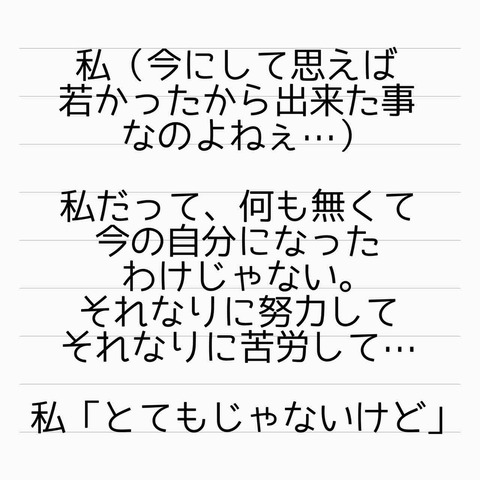 私（今にして思えば
若かったから出来た事
なのよねぇ…）
私だって、何も無くて
今の自分になった
わけじゃない。
それなりに努力して
それなりに苦労して…
私「とてもじゃないけど」